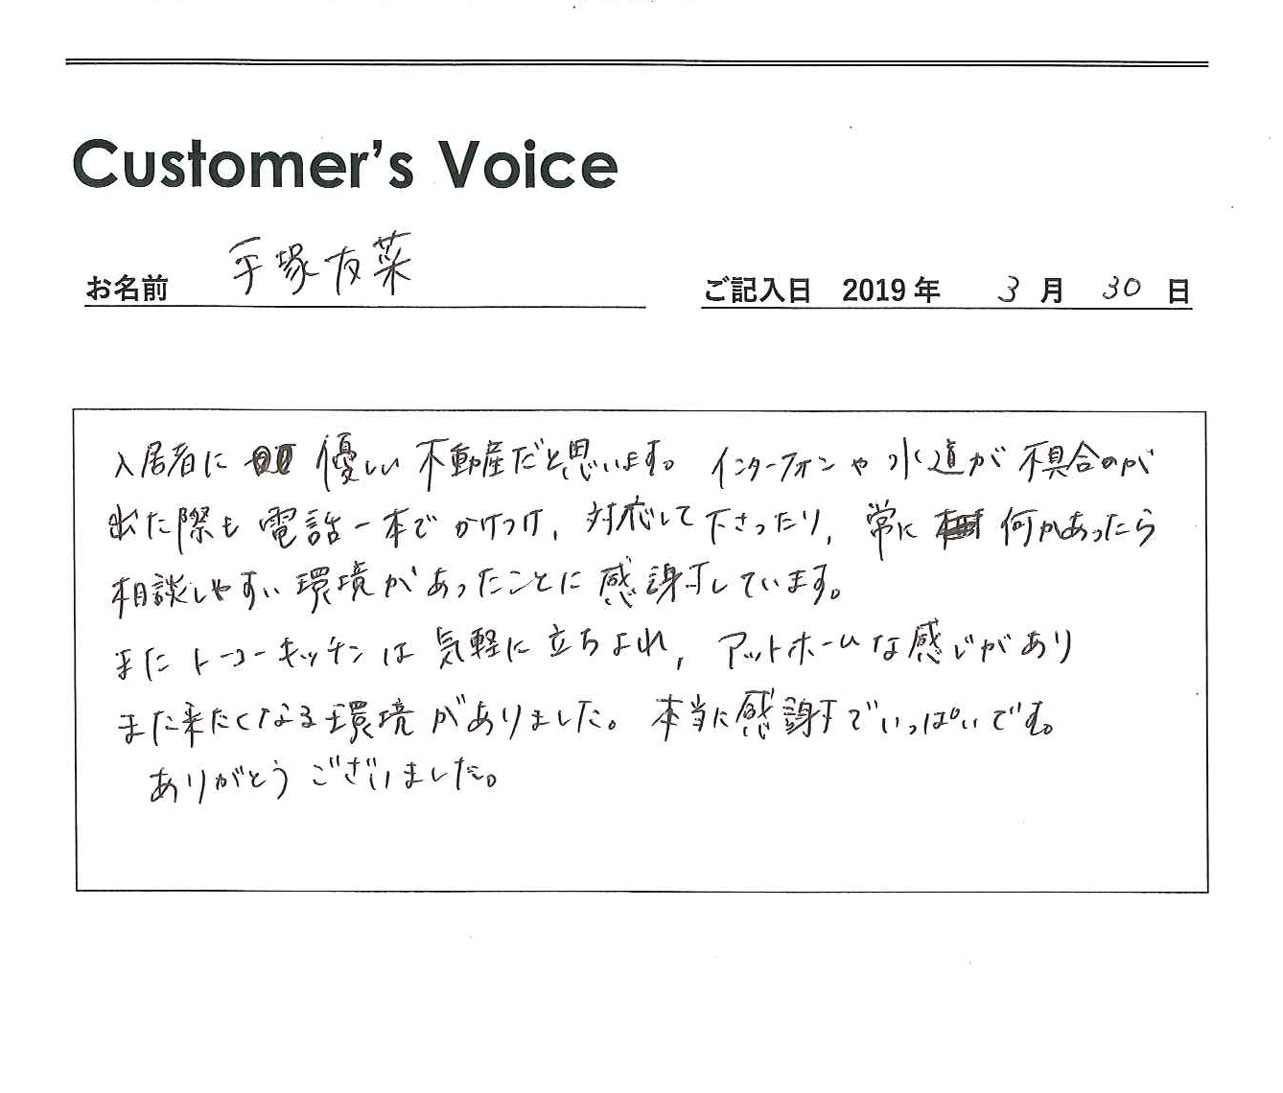 Customer's Voice
お名前 手塚友菜 ご記入日 2019年 3月 30日
入居者に 優しい不動産だと思います。インターフォンや水道が不具合のが
出た際も電話一本でかけつけ、対応して下さったり、常に 何かあったら
相談しやすい環境があったことに感謝しています。
またトーコーキッチンは気軽に立ちよれ、アットホームな感じがあり
また来たくなる環境がありました。本当に感謝でいっぱいです。
ありがとうございました。